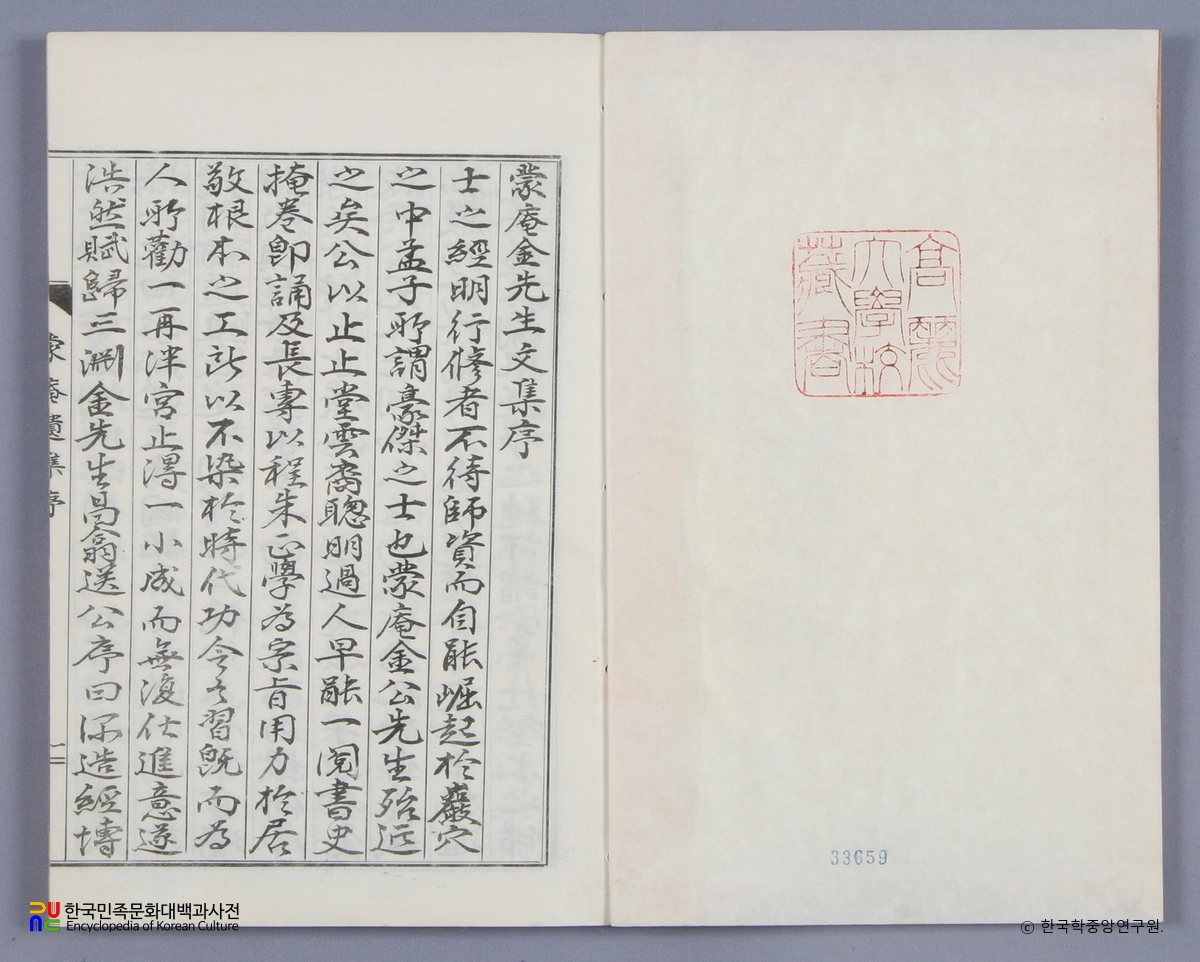 高麗
大學校
藏書
33659
蒙庵金先生文集序
士之經明行修者不待師資而自能崛起於巖穴
之中孟子所謂豪傑之士也蒙庵金公先生殆近
之矣公以止止堂雲裔聰明過人早能一閱書史
掩卷卽誦及長專以程朱正學為宗旨用力於居
敬根本之工所以不染於時代功令之習旣而為
人所勸一再泮宮止得一小成而無復仕進意遂
浩然賦歸三淵金先生昌翕送公序曰深造經博
蒙庵遺集序
一
한국민족문화대백과사전
Encyclopedia of Korean Culture
© 한국학중앙연구원.